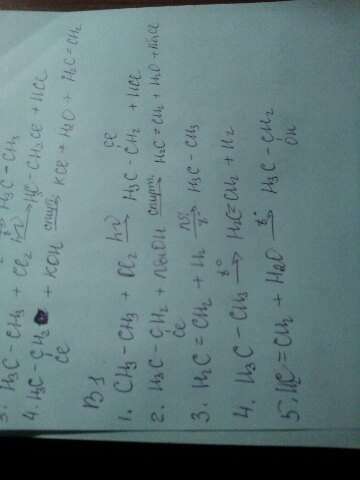 3. H3C-CH3 + Cl2 hν→ H3C-CH2Cl + HCl
4. H3C-CH2 + KOH спирт→ KCl + H2O + H2C=CH2
Cl
B1
Cl
1. CH3-CH3 + Cl2 hν→ H3C-CH2 + HCl
2. H3C-CH2 + NaOH спирт→ H2C=CH2 + H2O + NaCl
Cl
3. H2C=CH2 + H2 Ni, t°→ H3C-CH3
4. H3C-CH3 t°→ H2C=CH2 + H2
5. H2C=CH2 + H2O t°→ H3C-CH2
OH